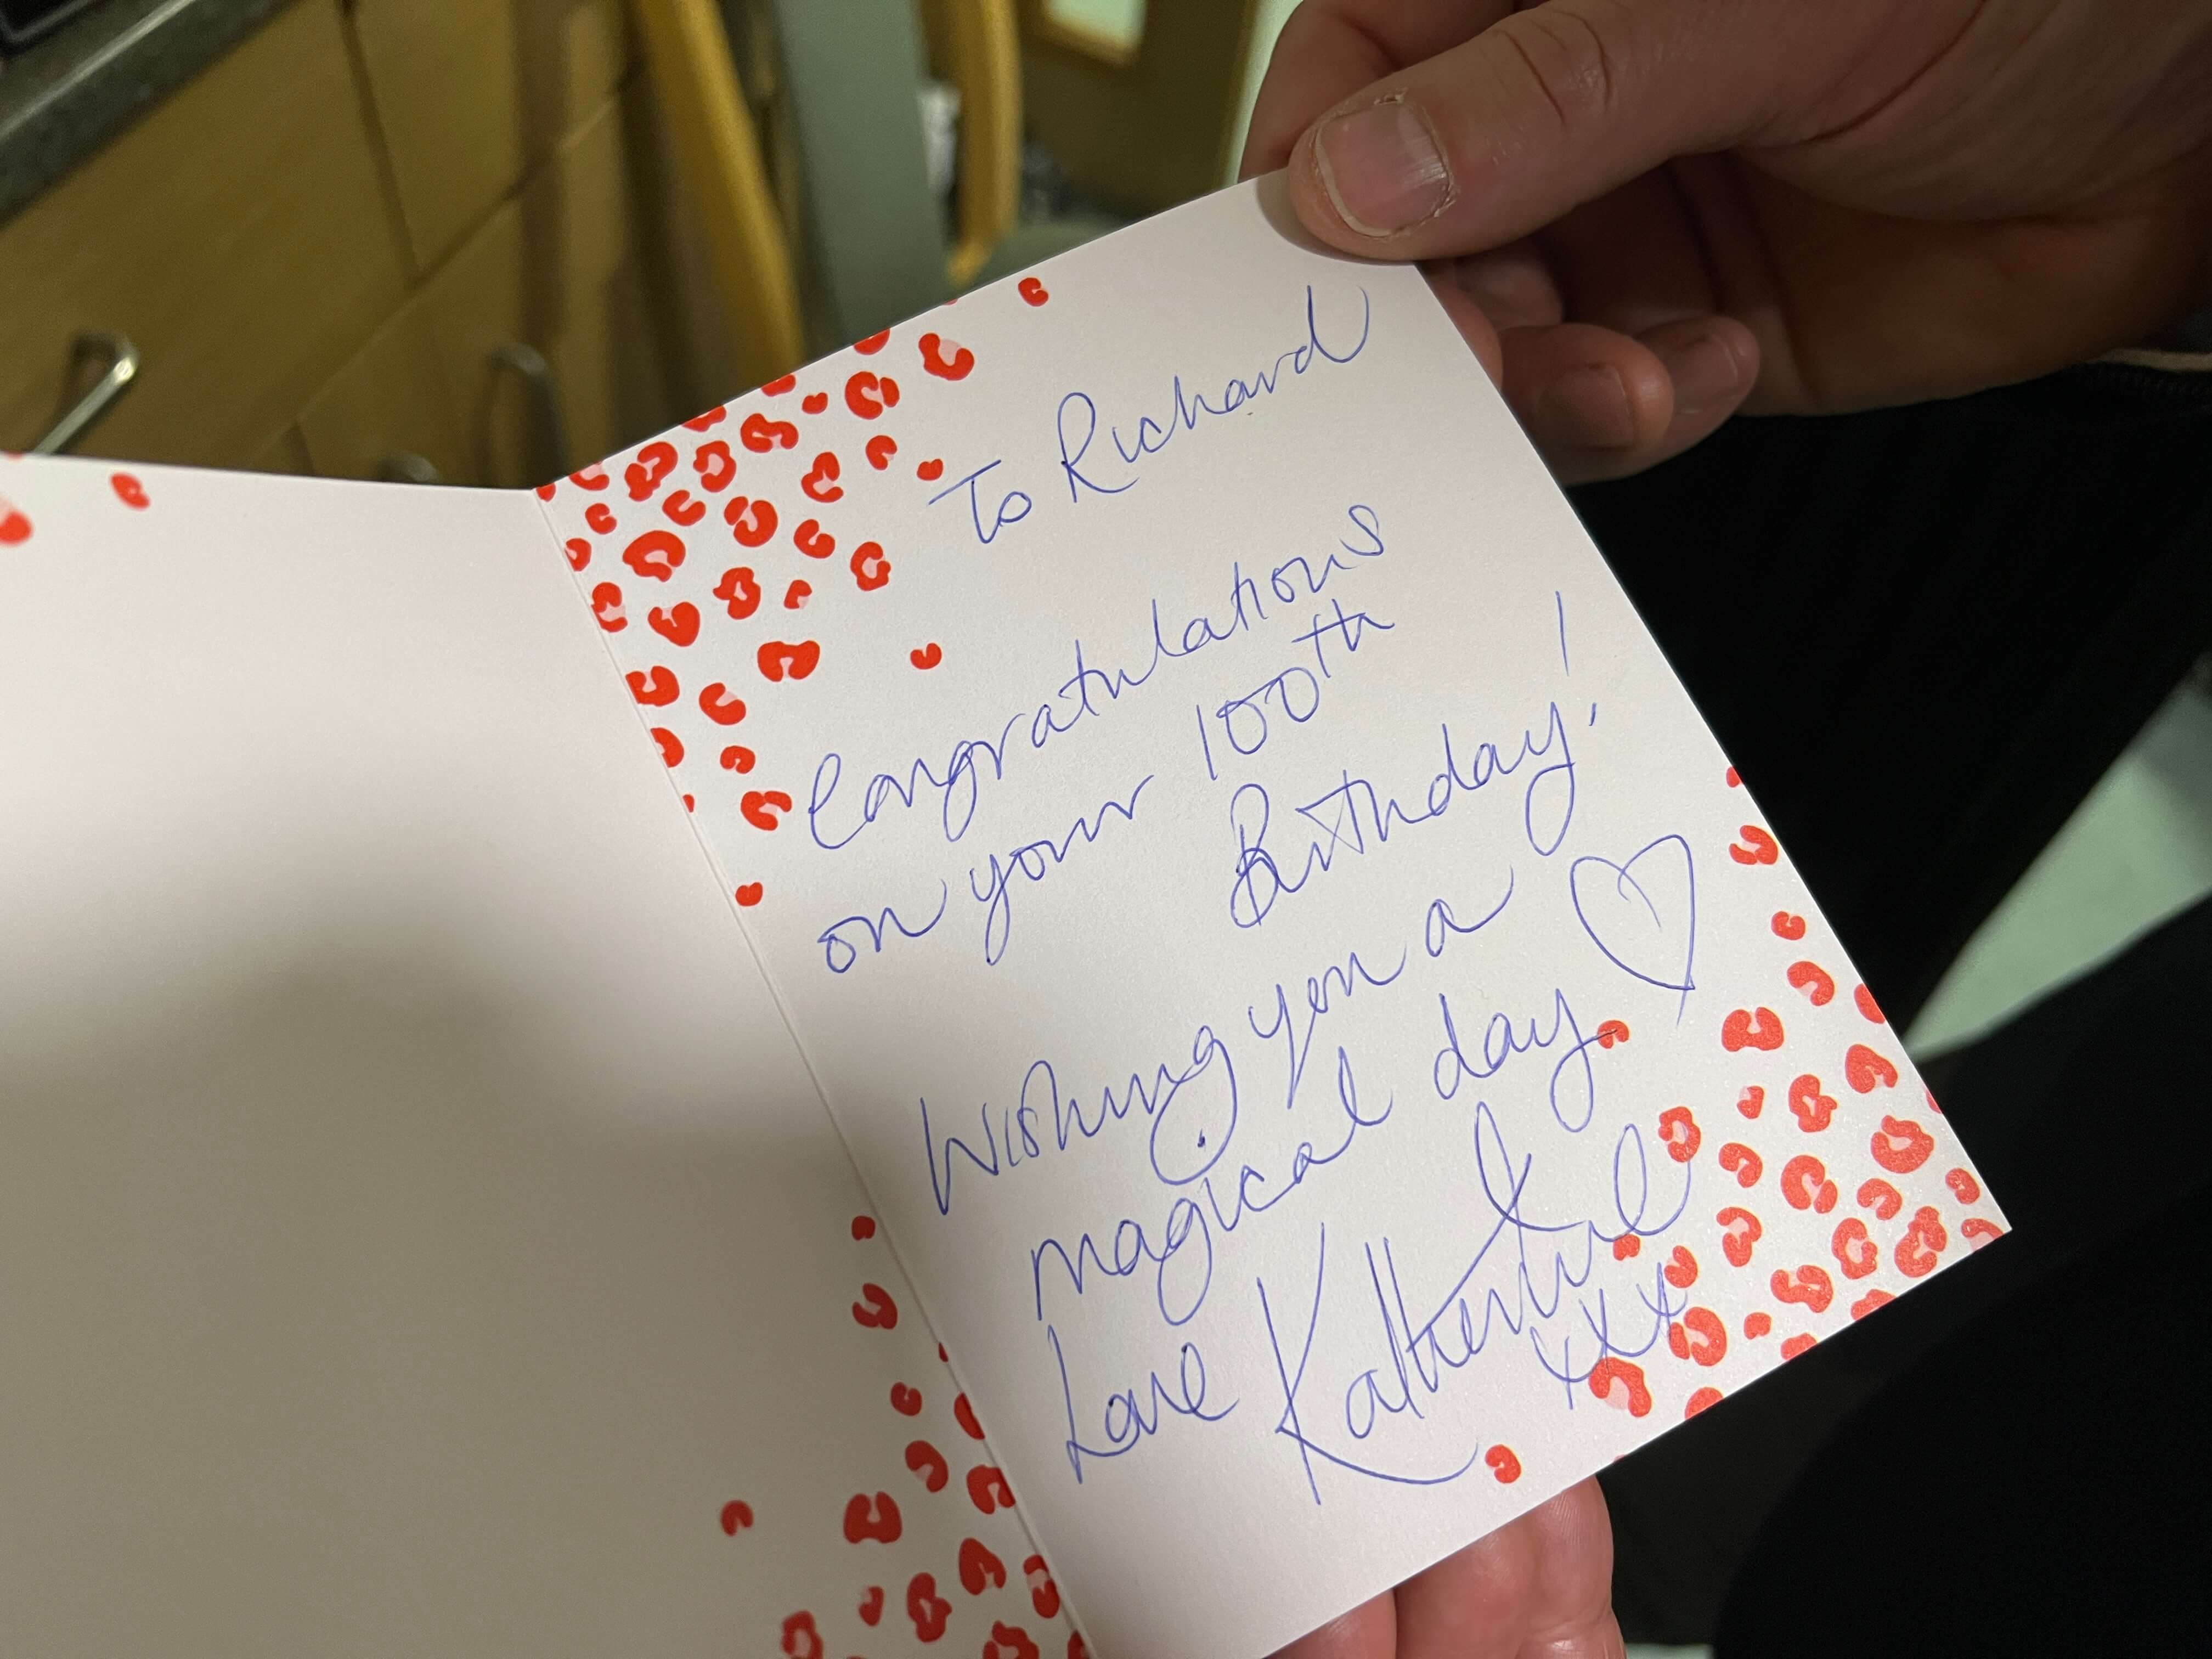 To Richard
Congratulations
on your 100th
Birthday!
Wishing you a
magical day
Love Katherine
xxx